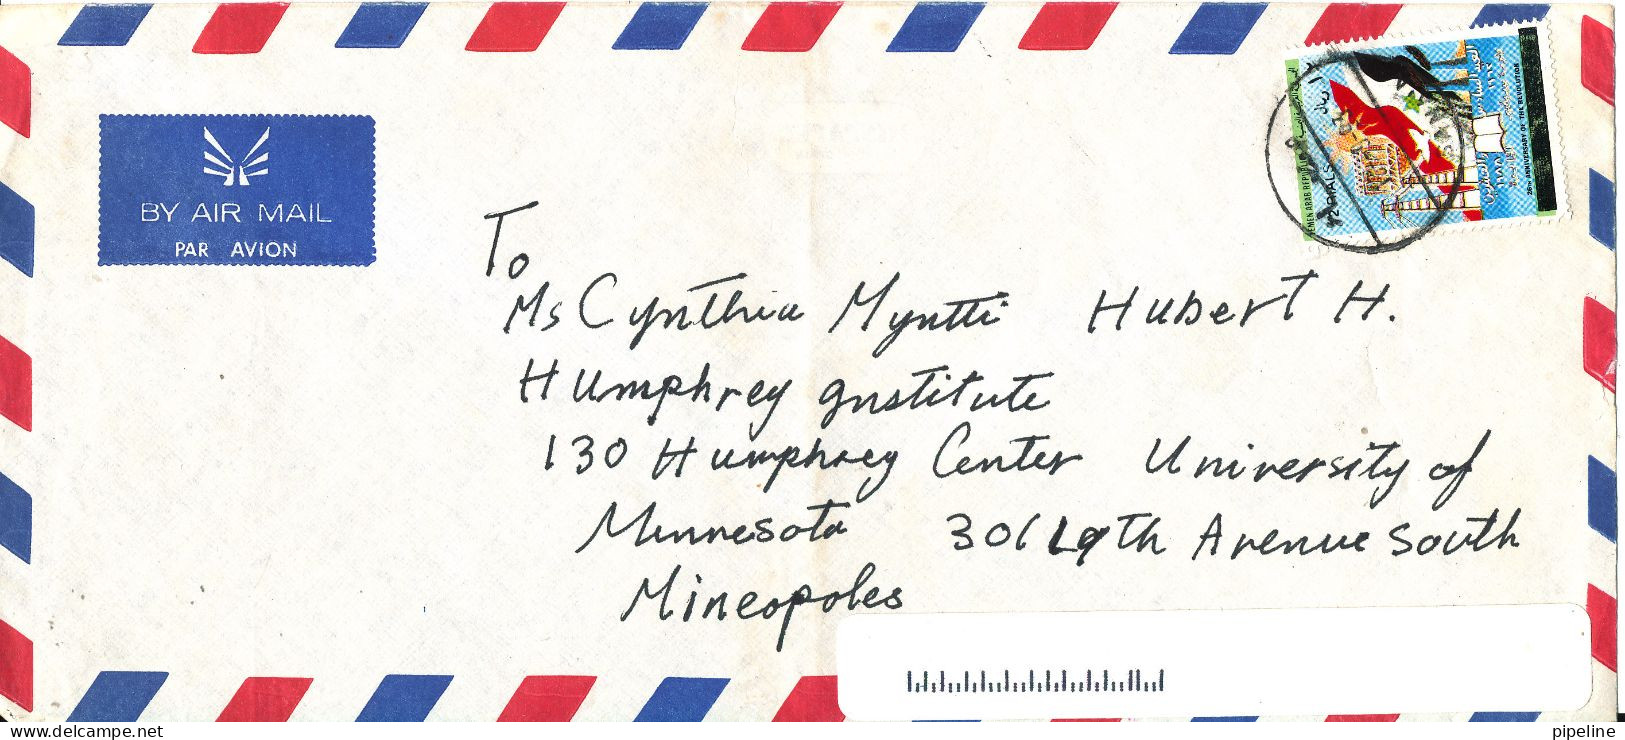 BY AIR MAIL
PAR AVION
YEMEN ARAB REPUBLIC
26TH ANNIVERSARY OF THE REVOLUTION
To
Ms Cynthia Myntti Hubert H.
Humphrey Institute
130 Humphrey Center University of
Minnesota 301 19th Avenue South
Mineopoles
pipeline